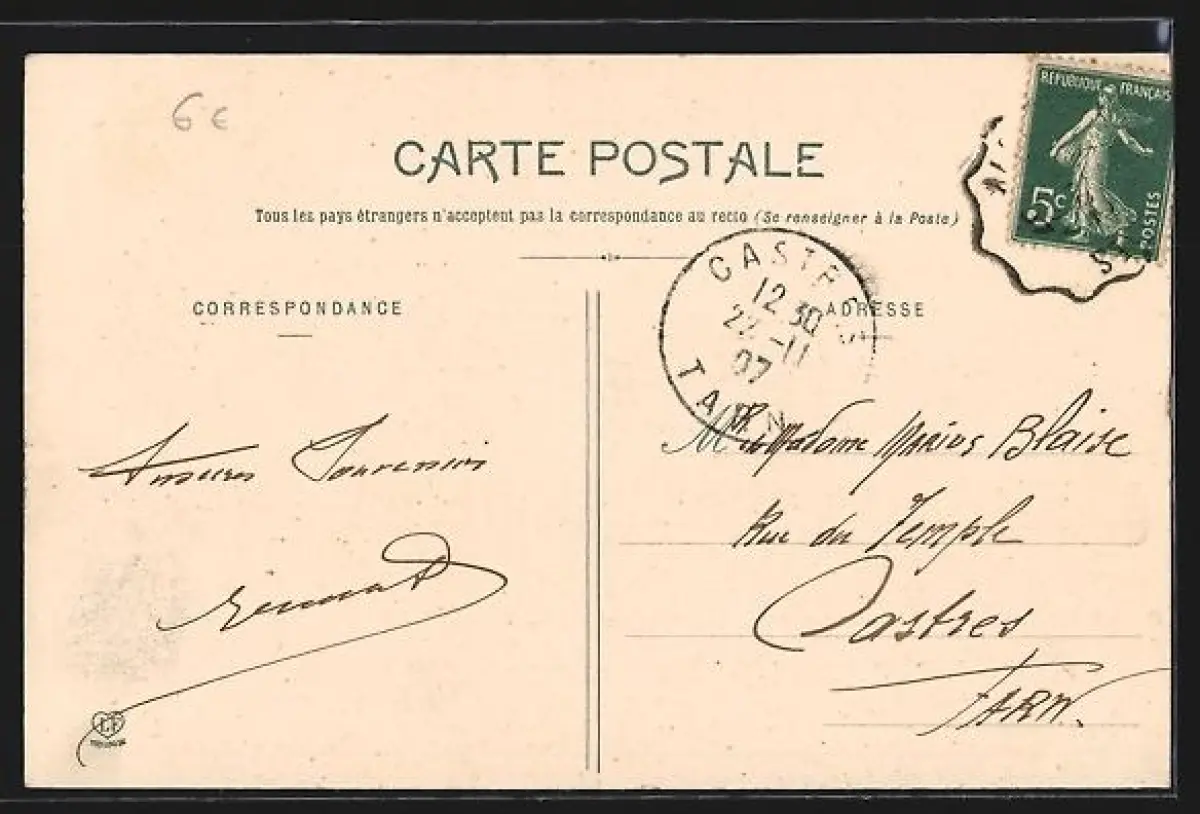 6 €
CARTE POSTALE
Tous les pays étrangers n'acceptent pas la correspondance au recto (Se renseigner à la Poste)
RÉPUBLIQUE FRANÇAISE
5c
POSTES
CASTRES
12 30
22-11
07
TARN
CORRESPONDANCE
ADRESSE
Souvenirs
Madame Marius Blaise
Rue du Temple
Castres
TARN.